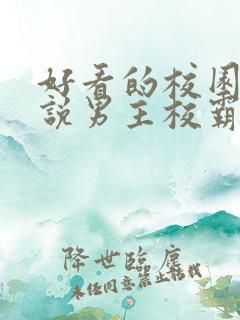 好看的校园
說男主校霸
降世臨塵
未经同意禁止转载